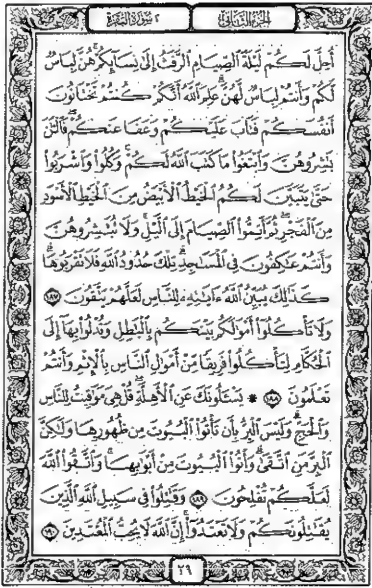 سورة البقرة ٢
الجزء الثاني
أُحِلَّ لَكُمْ لَيْلَةَ ٱلصِّيَامِ ٱلرَّفَثُ إِلَىٰ نِسَآئِكُمْ هُنَّ لِبَاسٌ
لَّكُمْ وَأَنتُمْ لِبَاسٌ لَّهُنَّ عَلِمَ ٱللَّهُ أَنَّكُمْ كُنتُمْ تَخْتَانُونَ
أَنفُسَكُمْ فَتَابَ عَلَيْكُمْ وَعَفَا عَنكُمْ فَٱلْـَٰٔنَ
بَٰشِرُوهُنَّ وَٱبْتَغُوا۟ مَا كَتَبَ ٱللَّهُ لَكُمْ وَكُلُوا۟ وَٱشْرَبُوا۟
حَتَّىٰ يَتَبَيَّنَ لَكُمُ ٱلْخَيْطُ ٱلْأَبْيَضُ مِنَ ٱلْخَيْطِ ٱلْأَسْوَدِ
مِنَ ٱلْفَجْرِ ثُمَّ أَتِمُّوا۟ ٱلصِّيَامَ إِلَى ٱلَّيْلِ وَلَا تُبَٰشِرُوهُنَّ
وَأَنتُمْ عَٰكِفُونَ فِى ٱلْمَسَٰجِدِ تِلْكَ حُدُودُ ٱللَّهِ فَلَا تَقْرَبُوهَا
كَذَٰلِكَ يُبَيِّنُ ٱللَّهُ ءَايَٰتِهِۦ لِلنَّاسِ لَعَلَّهُمْ يَتَّقُونَ ١٨٧
وَلَا تَأْكُلُوٓا۟ أَمْوَٰلَكُم بَيْنَكُم بِٱلْبَٰطِلِ وَتُدْلُوا۟ بِهَآ إِلَى
ٱلْحُكَّامِ لِتَأْكُلُوا۟ فَرِيقًا مِّنْ أَمْوَٰلِ ٱلنَّاسِ بِٱلْإِثْمِ وَأَنتُمْ
تَعْلَمُونَ ١٨٨ ۞ يَسْـَٔلُونَكَ عَنِ ٱلْأَهِلَّةِ قُلْ هِىَ مَوَٰقِيتُ لِلنَّاسِ
وَٱلْحَجِّ وَلَيْسَ ٱلْبِرُّ بِأَن تَأْتُوا۟ ٱلْبُيُوتَ مِن ظُهُورِهَا وَلَٰكِنَّ
ٱلْبِرَّ مَنِ ٱتَّقَىٰ وَأْتُوا۟ ٱلْبُيُوتَ مِنْ أَبْوَٰبِهَا وَٱتَّقُوا۟ ٱللَّهَ
لَعَلَّكُمْ تُفْلِحُونَ ١٨٩ وَقَٰتِلُوا۟ فِى سَبِيلِ ٱللَّهِ ٱلَّذِينَ
يُقَٰتِلُونَكُمْ وَلَا تَعْتَدُوٓا۟ إِنَّ ٱللَّهَ لَا يُحِبُّ ٱلْمُعْتَدِينَ ١٩٠
٢٩